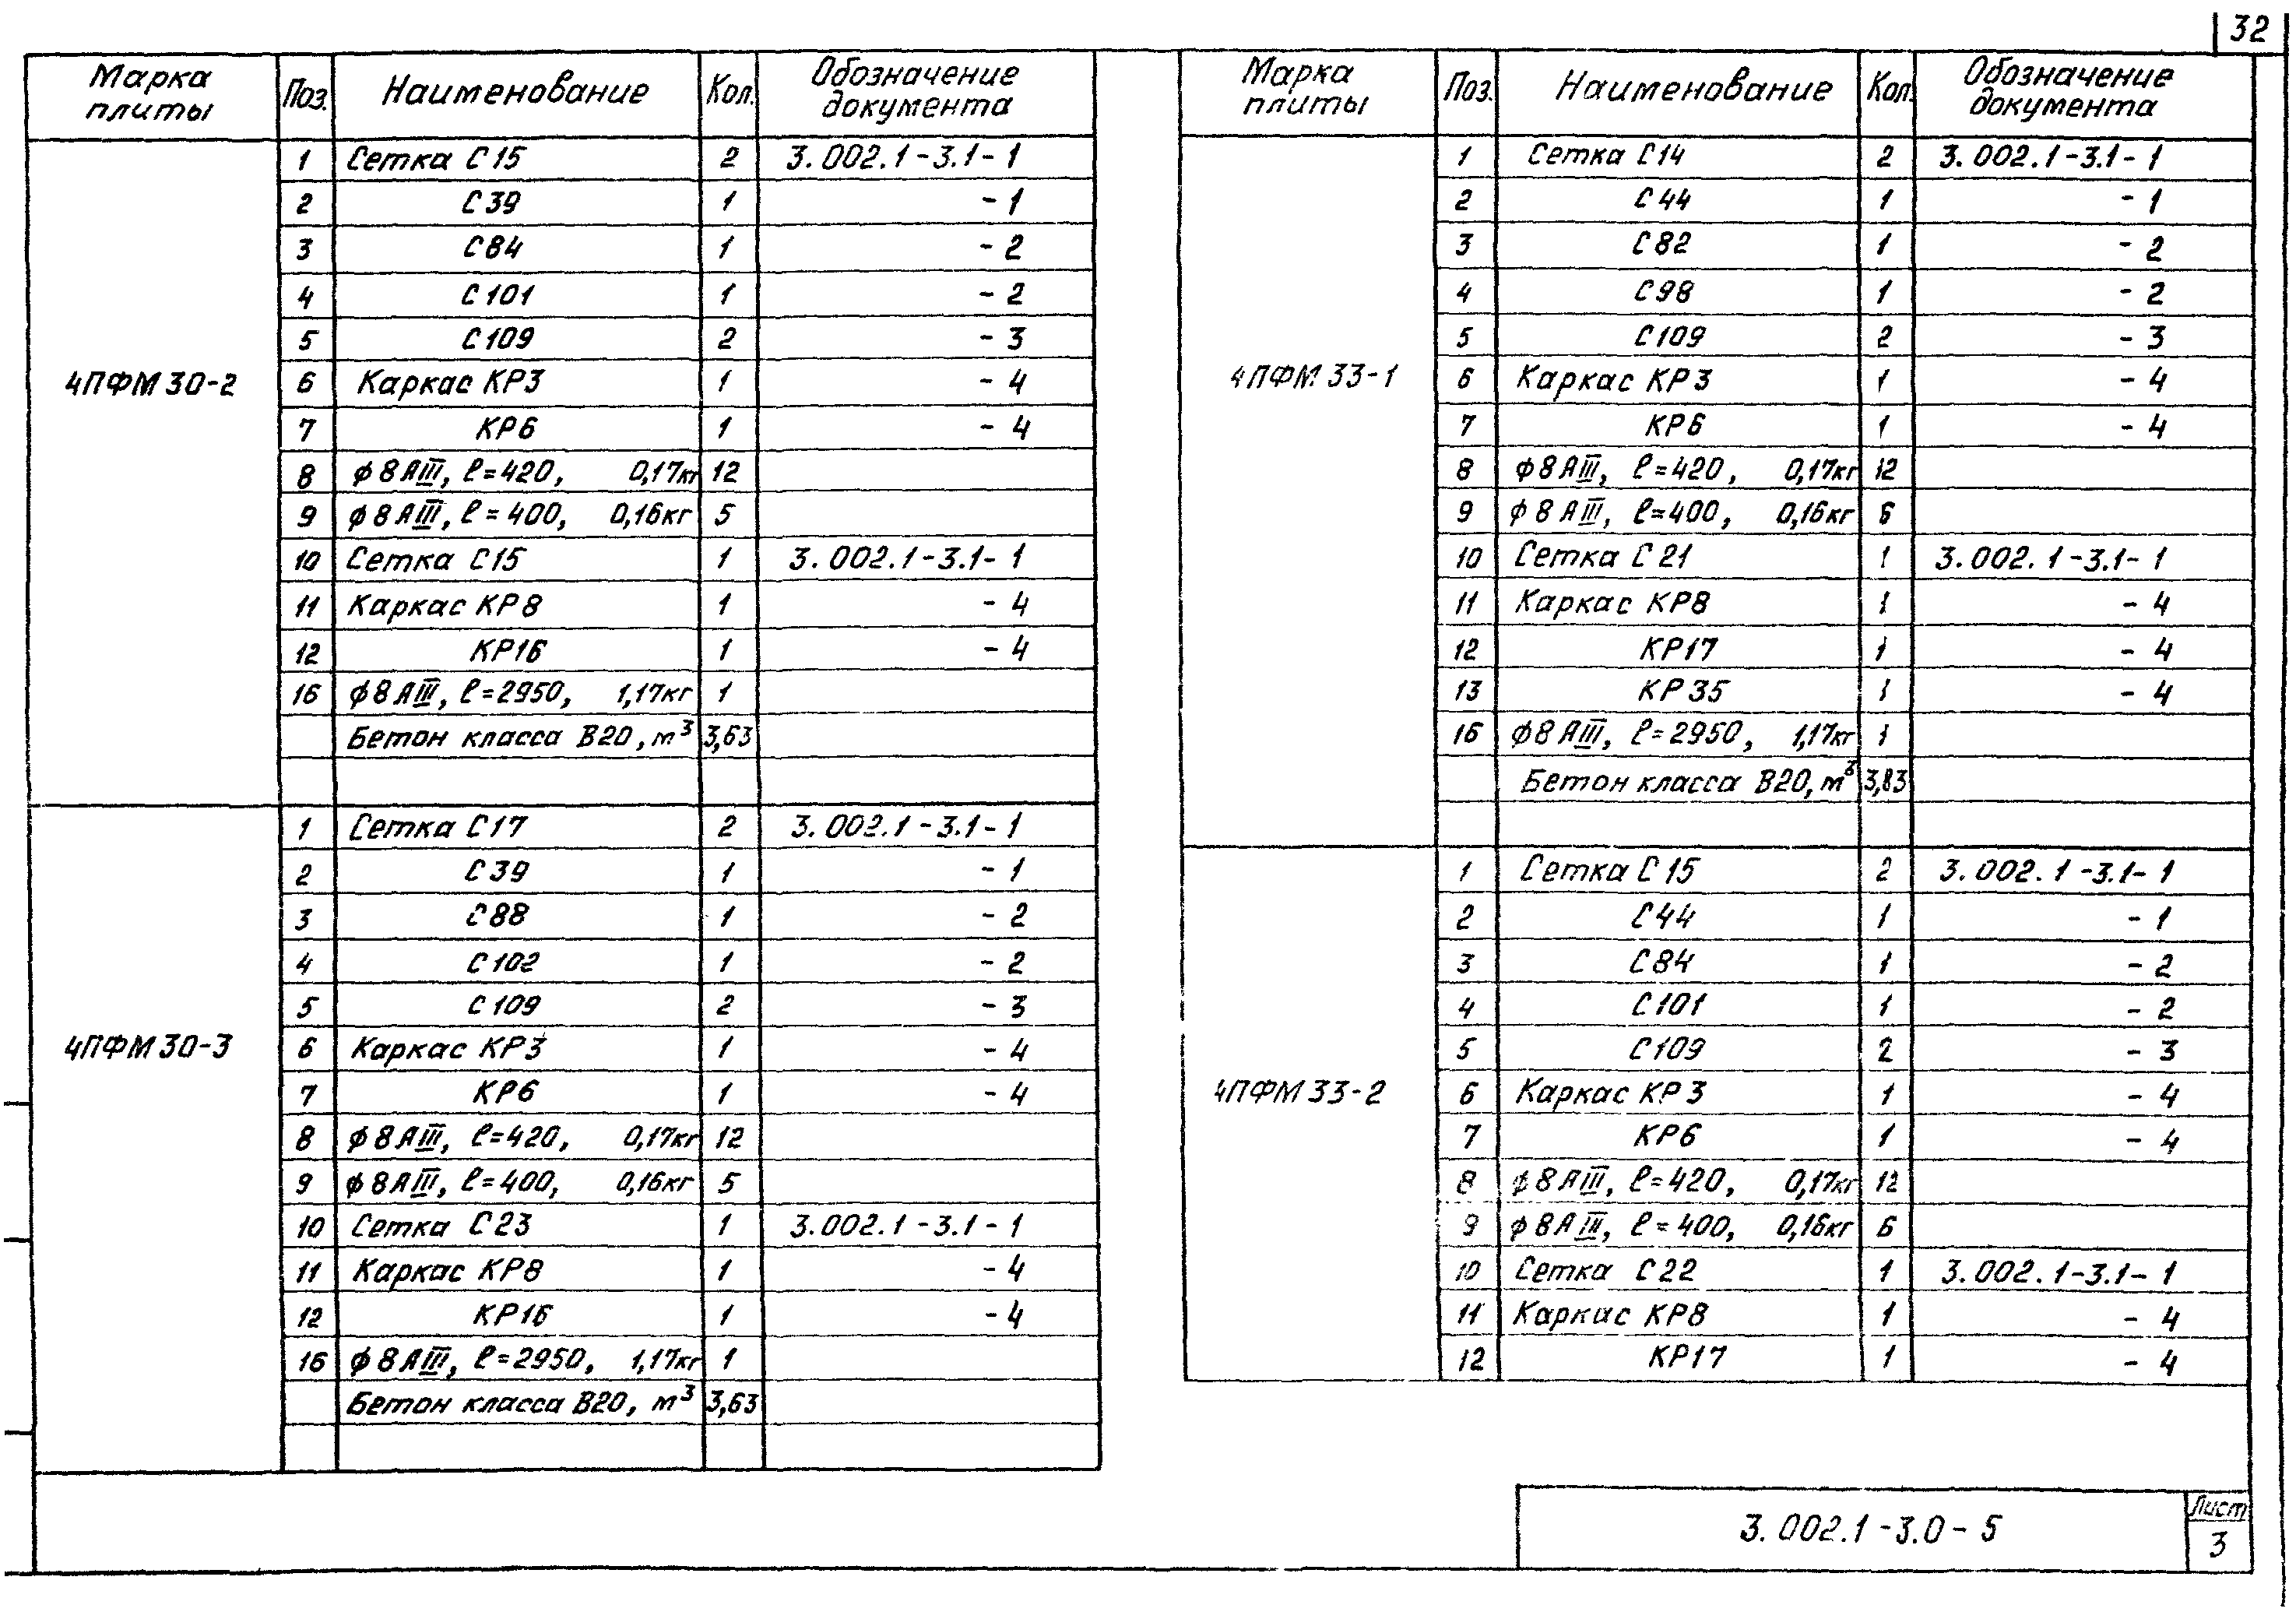 32
Марка плиты Поз. Наименование Кол. Обозначение документа
4ПФМ 30-2
1 Сетка С15 2 3.002.1-3.1-1
2 С39 1 -1
3 С84 1 -2
4 С101 1 -2
5 С109 2 -3
6 Каркас КР3 1 -4
7 КР6 1 -4
8 ф8АIII, ℓ=420, 0,17кг 12
9 ф8АIII, ℓ=400, 0,16кг 5
10 Сетка С15 1 3.002.1-3.1-1
11 Каркас КР8 1 -4
12 КР16 1 -4
16 ф8АIII, ℓ=2950, 1,17кг 1
Бетон класса В20, м³ 3,63
4ПФМ 30-3
1 Сетка С17 2 3.002.1-3.1-1
2 С39 1 -1
3 С88 1 -2
4 С102 1 -2
5 С109 2 -3
6 Каркас КР3 1 -4
7 КР6 1 -4
8 ф8АIII, ℓ=420, 0,17кг 12
9 ф8АIII, ℓ=400, 0,16кг 5
10 Сетка С23 1 3.002.1-3.1-1
11 Каркас КР8 1 -4
12 КР16 1 -4
16 ф8АIII, ℓ=2950, 1,17кг 1
Бетон класса В20, м³ 3,63
Марка плиты Поз. Наименование Кол. Обозначение документа
4ПФМ 33-1
1 Сетка С14 2 3.002.1-3.1-1
2 С44 1 -1
3 С82 1 -2
4 С98 1 -2
5 С109 2 -3
6 Каркас КР3 1 -4
7 КР6 1 -4
8 ф8АIII, ℓ=420, 0,17кг 12
9 ф8АIII, ℓ=400, 0,16кг 6
10 Сетка С21 1 3.002.1-3.1-1
11 Каркас КР8 1 -4
12 КР17 1 -4
13 КР35 1 -4
16 ф8АIII, ℓ=2950, 1,17кг 1
Бетон класса В20, м³ 3,83
4ПФМ 33-2
1 Сетка С15 2 3.002.1-3.1-1
2 С44 1 -1
3 С84 1 -2
4 С101 1 -2
5 С109 2 -3
6 Каркас КР3 1 -4
7 КР6 1 -4
8 ф8АIII, ℓ=420, 0,17кг 12
9 ф8АIII, ℓ=400, 0,16кг 6
10 Сетка С22 1 3.002.1-3.1-1
11 Каркас КР8 1 -4
12 КР17 1 -4
3.002.1-3.0-5
Лист
3